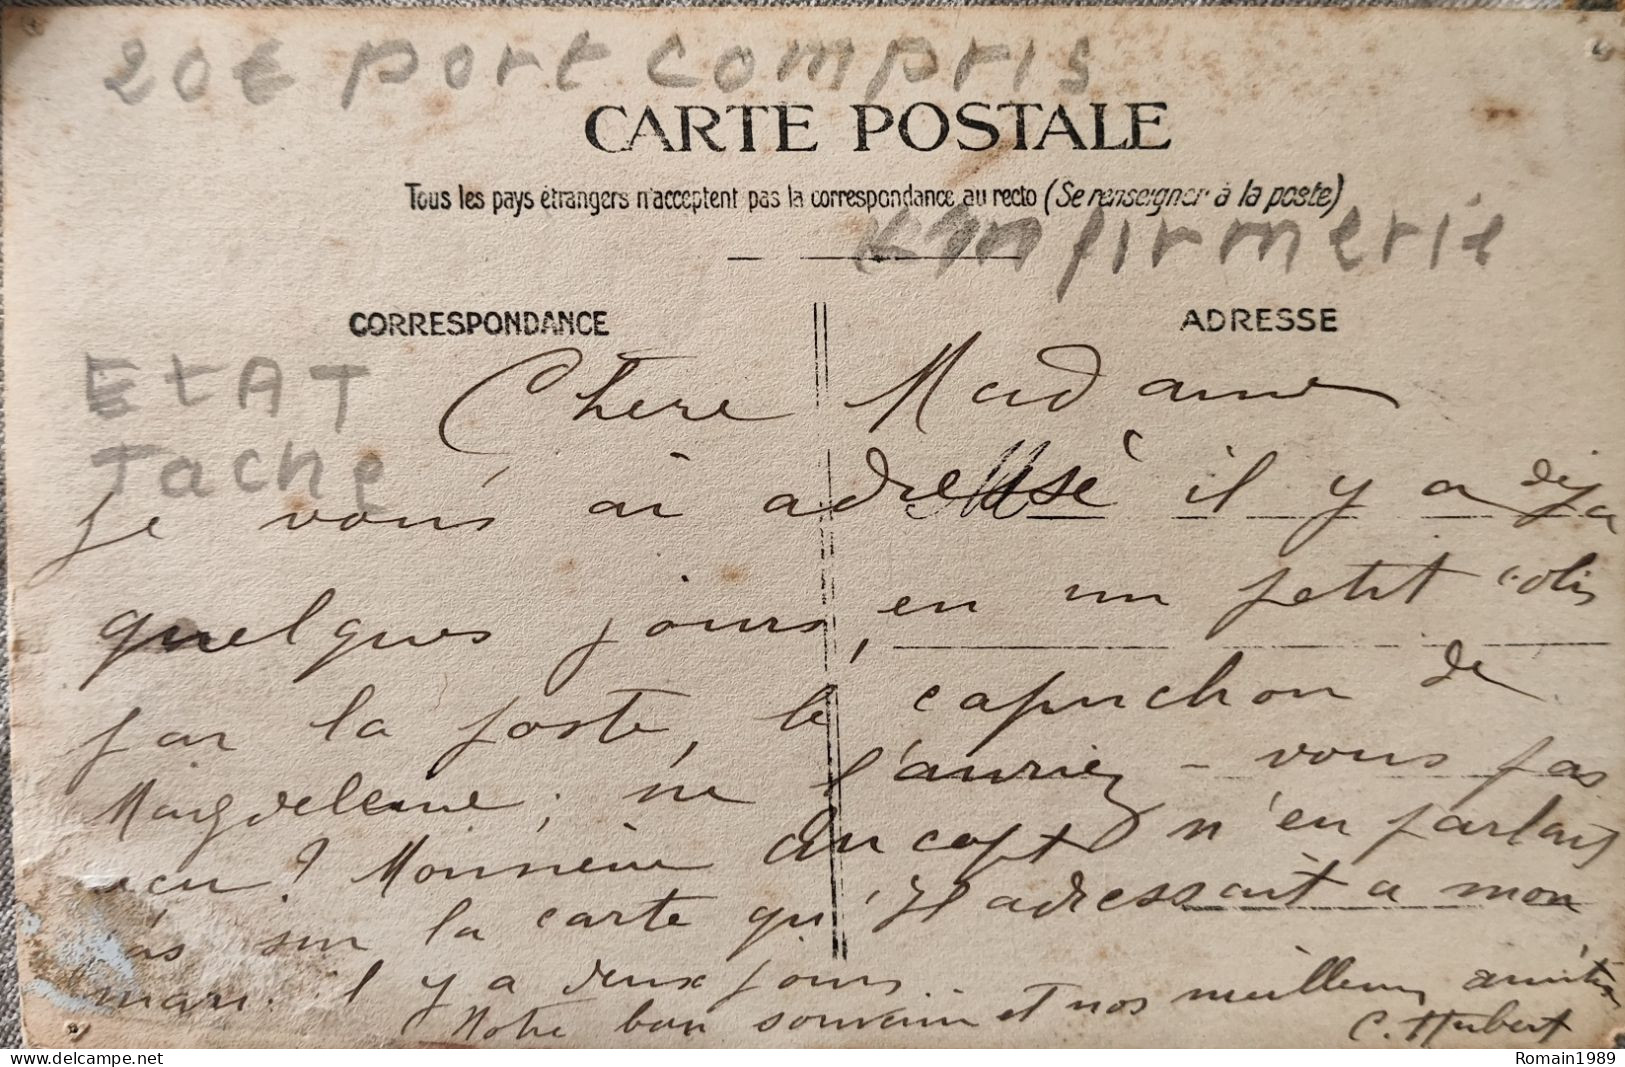 20€ port compris
CARTE POSTALE
Tous les pays étrangers n'acceptent pas la correspondance au recto (Se renseigner à la poste)
infirmerie
CORRESPONDANCE
ADRESSE
EtAT
Tache
Chère Madame
je vous ai adressé il y a déjà
quelques jours, en un petit colis
par la poste, le capuchon de
Magdeleine; ne l'auriez-vous pas
reçu? Monsieur Ducopt n'en parlait
pas sur la carte qu'il adressait a mon
mari il y a deux jours..
Notre bon souvenir et nos meilleures amitiés
C. Hubert
Romain1989